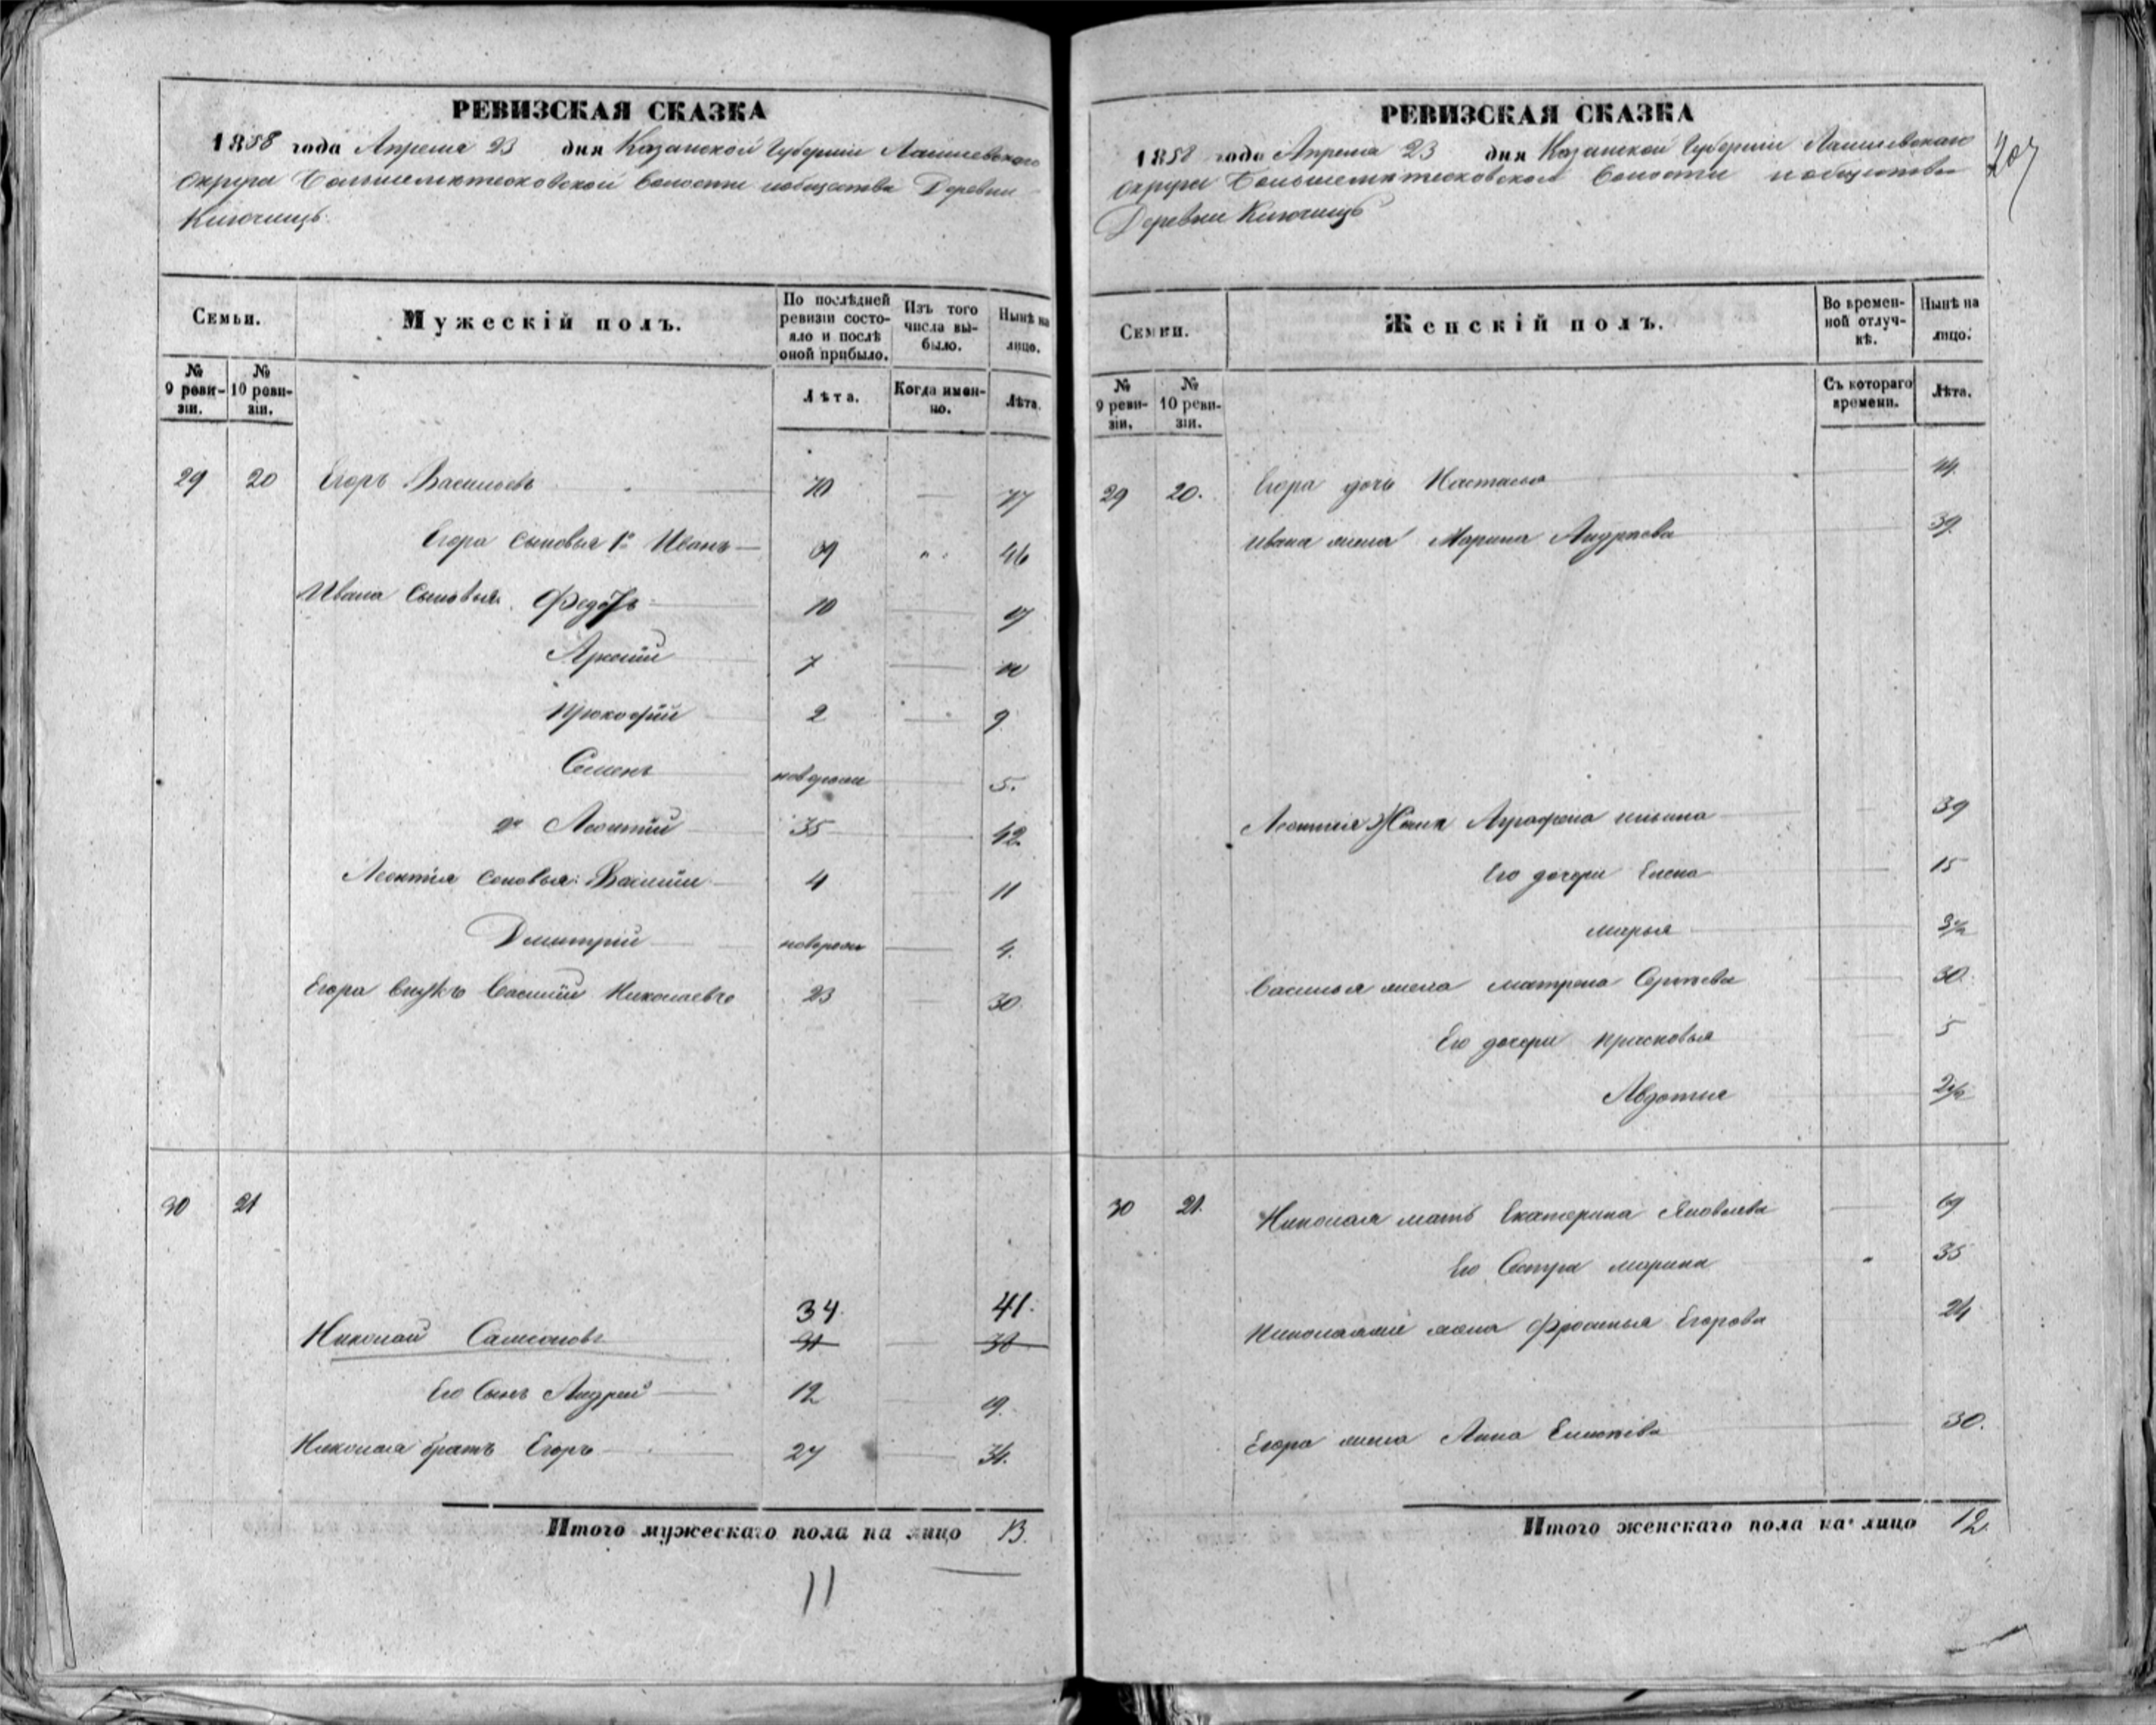 РЕВИЗСКАЯ СКАЗКА
1858 года Апреля 23 дня Казанской Губернии Лаишевского
округа волости и общества Деревни
Ключищъ.
Семьи.
Мужескій полъ.
По послѣдней ревизіи состояло и послѣ оной прибыло.
Изъ того числа выбыло.
Нынѣ на лицо.
№ 9 ревизіи.
№ 10 ревизіи.
Лѣта.
Когда именно.
Лѣта.
29 20 Егоръ Васильевъ 70 — 77
Егора сыновья 1й Иванъ — 39 " 46
Ивана сыновья Федотъ 10 — 17
7 —
Прокофій 2 — 9.
Семенъ новорожд — 5.
2й Леонтій 35 — 42
Леонтія соновья: Василий 4 — 11
Дмитрій новорожд — 4.
Егора внукъ Василий Николаевъ 23 — 30.
30 21
34. 41.
Николай Самсоновъ 31 — 38
Его Сынъ Андрей 12 — 19.
Николая братъ Егоръ 27 — 34.
Итого мужескаго пола на лицо 13.
11
РЕВИЗСКАЯ СКАЗКА
1858 года Апреля 23 дня Казанской Губернии Лаишевского
округа волости и общества
Деревни Ключищъ
207
Семьи.
Женскій полъ.
Во временной отлучкѣ.
Нынѣ на лицо.
№ 9 ревизіи.
№ 10 ревизіи.
Съ котораго времени.
Лѣта.
29 20. Егора дочь Настасья 44.
Ивана жена Марина Андреева 39.
Леонтия Жена Аграфена ильина 39
Его дочери Елена 15
марья 3½
Василья жена матрена Сергѣева 30.
Его дочери прасковья 5
Авдотья 2½
30 21. Николая мать Екатерина Яковлева 69
Его Сестра марина 35
жена Фросинья Егорова 24
Егора жена Анна 30.
Итого женскаго пола на лицо 12.